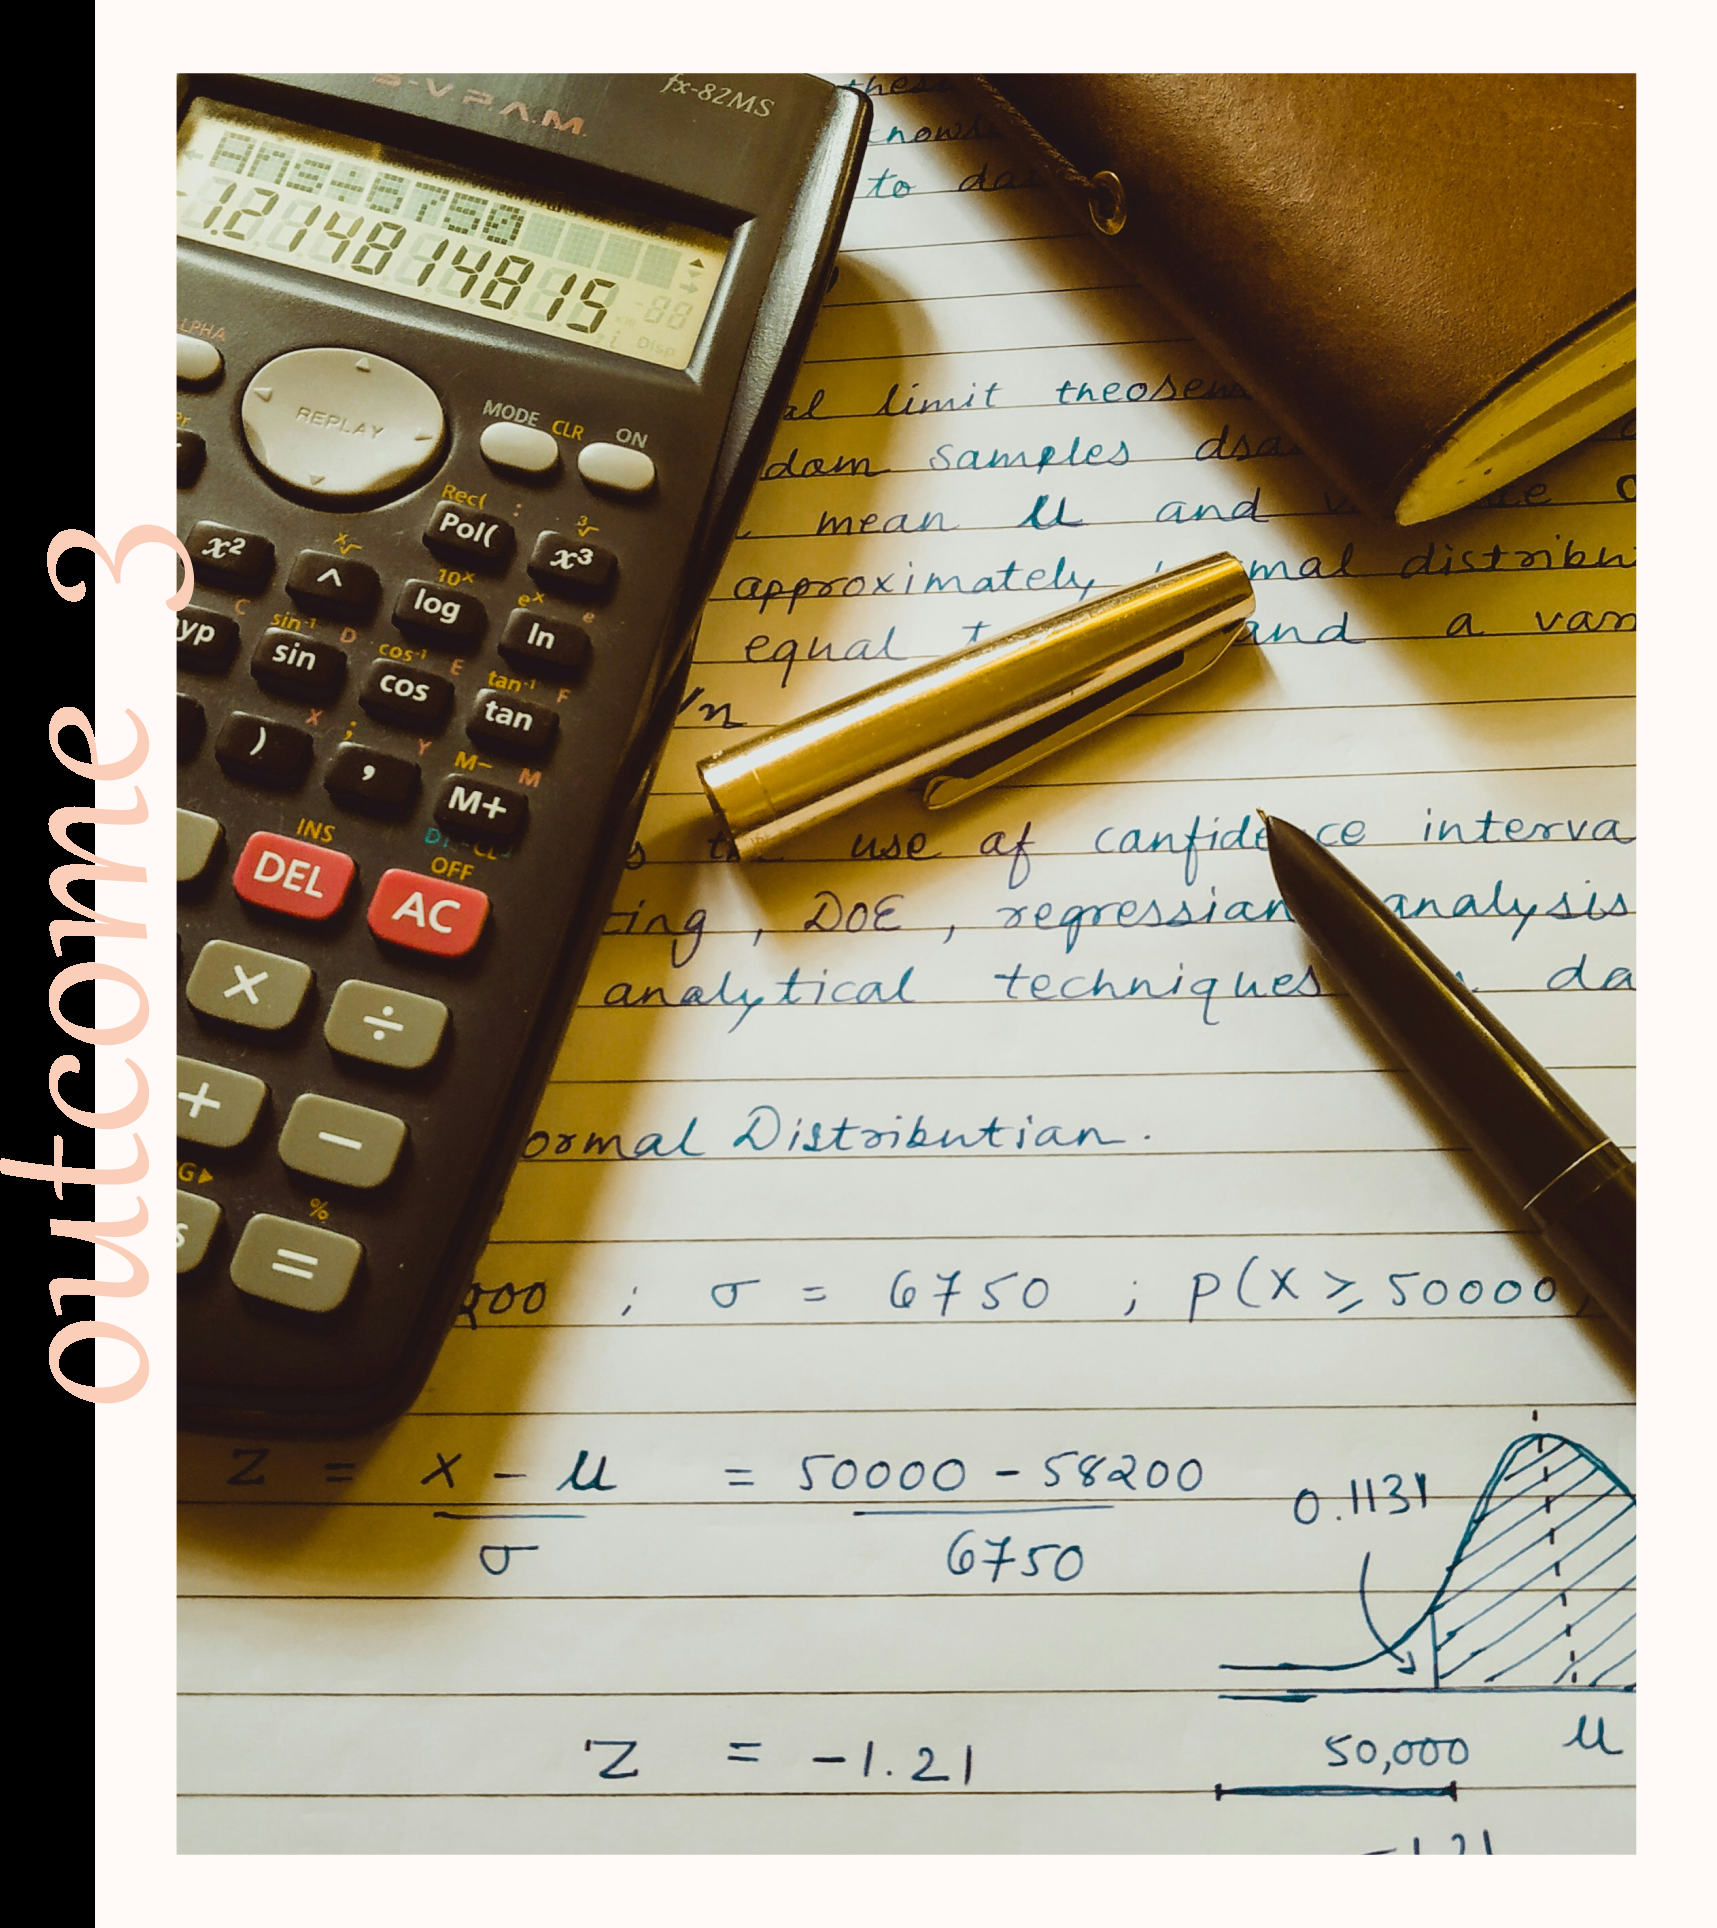 outcome 3
S-V.P.A.M.
fx-82MS
Ans÷6750
-1.214814815
Disp
REPLAY
MODE CLR ON
Rec( :
Pol(
x² ^ x³
10ˣ eˣ e
log ln
C sin⁻¹ D cos⁻¹ E tan⁻¹ F
yp sin cos tan
X ; Y M- M
) , M+
INS OFF
DEL AC
× ÷
+ −
%
=
these
to da
al limit theorem
dom samples dra
mean μ and
approximately mal distribu
equal and a var
/n
use of confide ce interva
ting, DOE, regression analysis
analytical techniques da
ormal Distribution.
200 ; σ = 6750 ; P(X ≥ 50000)
Z = X - μ / σ = 50000 - 58200 / 6750
0.1131
Z = -1.21
50,000 μ
-1.21